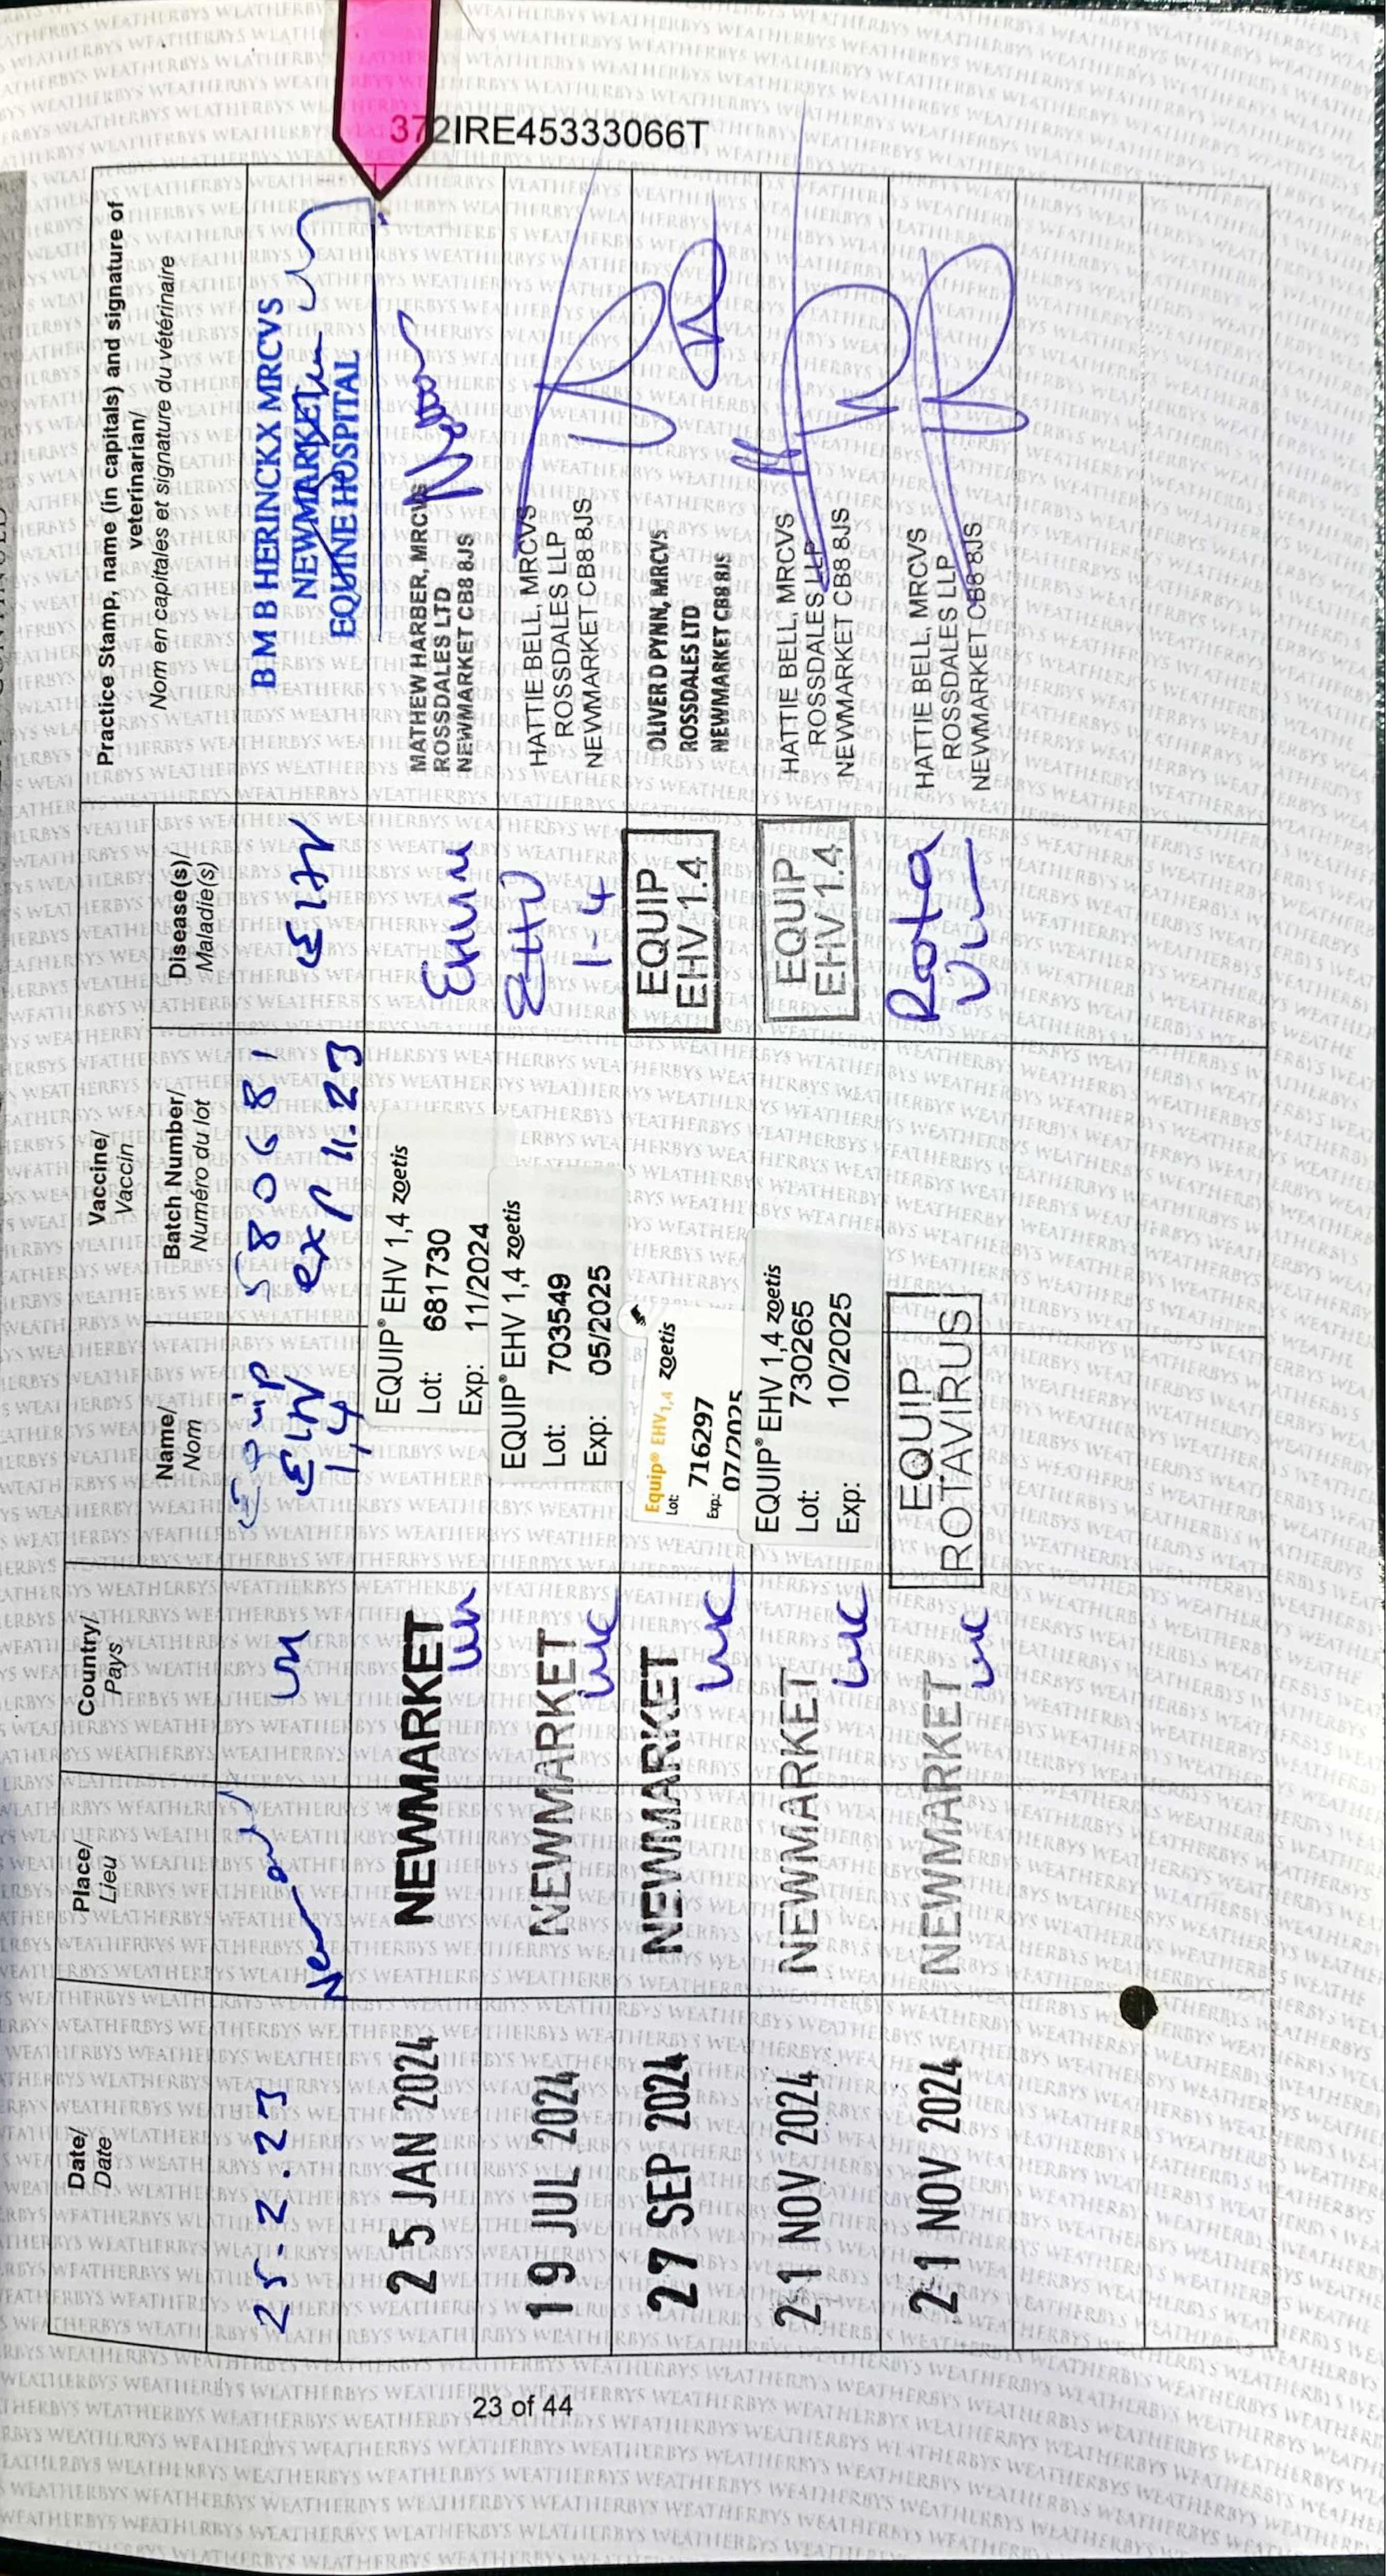 372IRE45333066T
Date/
Date
Place/
Lieu
Country/
Pays
Vaccine/
Vaccin
Name/
Nom
Batch Number/
Numéro du lot
Disease(s)/
Maladie(s)
Practice Stamp, name (in capitals) and signature of
veterinarian/
Nom en capitales et signature du vétérinaire
25.2.23
UK
Equip
EHV
1,4
580681
exp 11.23
EHV
B M B HERINCKX MRCVS
NEWMARKET
EQUINE HOSPITAL
25 JAN 2024
NEWMARKET
UK
EQUIP® EHV 1,4 zoetis
Lot: 681730
Exp: 11/2024
MATHEW HARBER, MRCVS
ROSSDALES LTD
NEWMARKET CB8 8JS
19 JUL 2024
NEWMARKET
UK
EQUIP® EHV 1,4 zoetis
Lot: 703549
Exp: 05/2025
EHV
1-4
HATTIE BELL, MRCVS
ROSSDALES LLP
NEWMARKET CB8 8JS
27 SEP 2024
NEWMARKET
UK
Equip® EHV1,4 zoetis
Lot: 716297
Exp: 07/2025
EQUIP
EHV 1.4
OLIVER D PYNN, MRCVS
ROSSDALES LTD
NEWMARKET CB8 8JS
21 NOV 2024
NEWMARKET
UK
EQUIP® EHV 1,4 zoetis
Lot: 730265
Exp: 10/2025
EQUIP
EHV 1.4
HATTIE BELL, MRCVS
ROSSDALES LLP
NEWMARKET CB8 8JS
21 NOV 2024
NEWMARKET
UK
EQUIP
ROTAVIRUS
Rota
HATTIE BELL, MRCVS
ROSSDALES LLP
NEWMARKET CB8 8JS
23 of 44